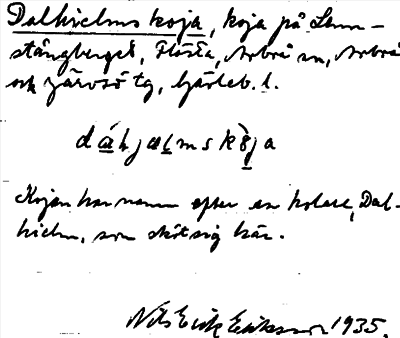 Dalhielms koja, koja på Lem-
stångberget, Flästa, Arbrå sn, Arbrå
och Järvsö tg, Gävleb. l.
dáhjælmskòja
Kojan har namn efter en kolare, Dal-
hielm, som skötsig här.
Nils Erik Eriksson 1935.